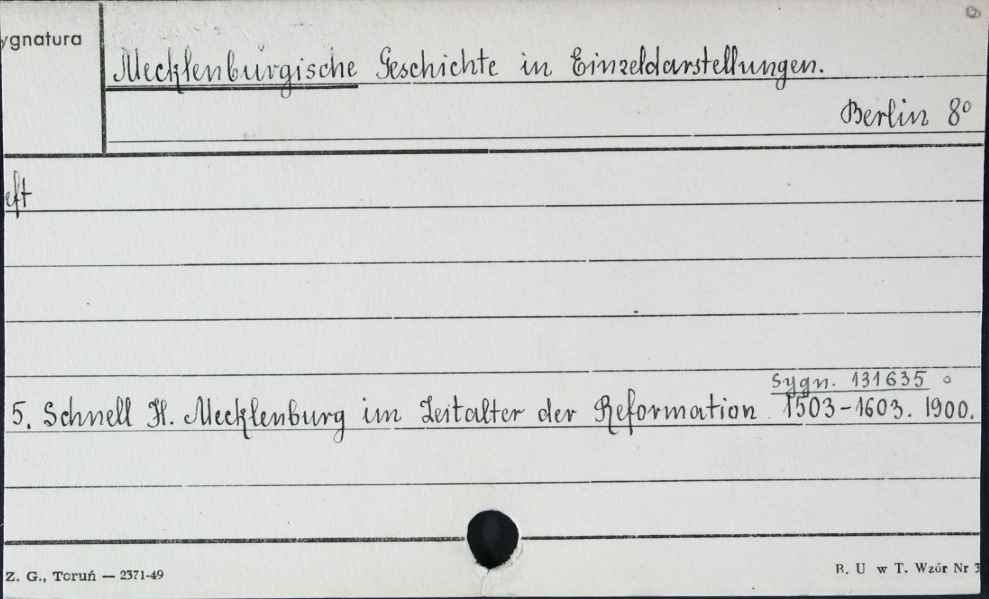 ygnatura
Mecklenburgische Geschichte in Einzeldarstellungen.
Berlin 8°
eft
Sygn. 131635
5. Schnell H. Mecklenburg im Zeitalter der Reformation 1503-1603. 1900.
Z. G., Toruń — 2371-49
B. U w T. Wzór Nr 3